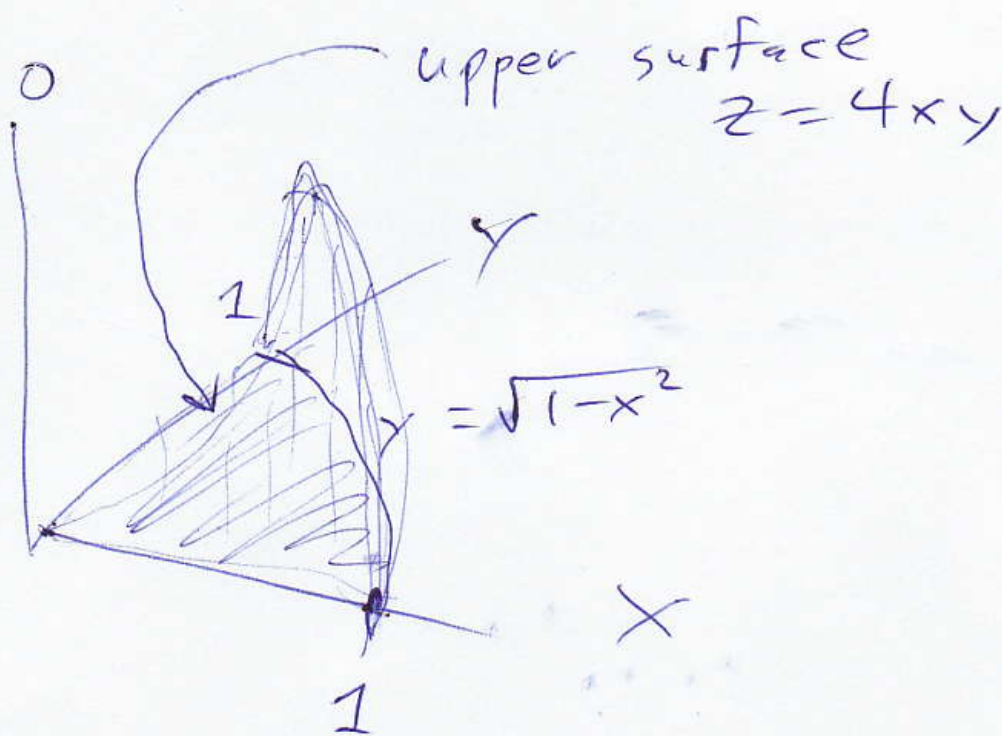 0
upper surface
z = 4xy
Y
1
y = √1-x²
X
1